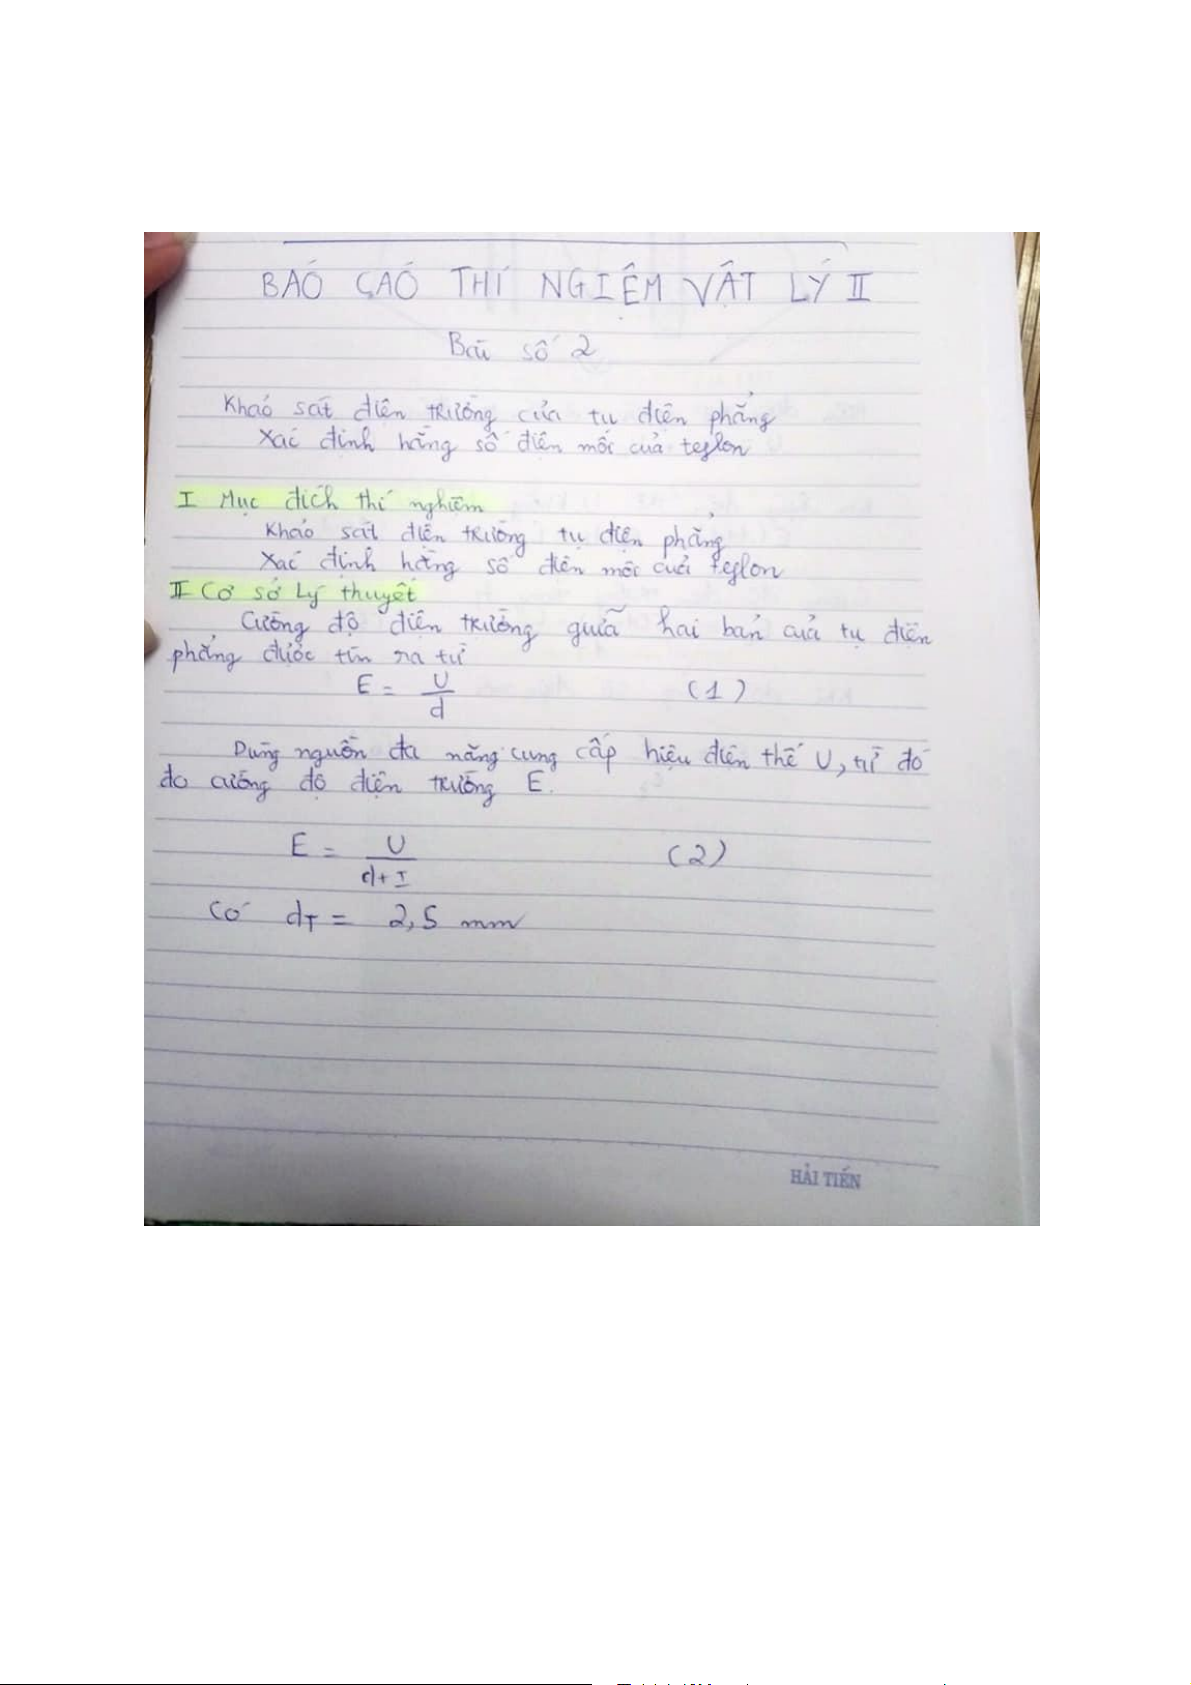 BÁO CÁO THÍ NGHIỆM VẬT LÝ II
Bài số 2
Khảo sát điện trường của tụ điện phẳng
Xác định hằng số điện môi của teflon
I Mục đích thí nghiệm
Khảo sát điện trường tụ điện phẳng
Xác định hằng số điện môi của teflon
II Cơ sở Lý thuyết
Cường độ điện trường giữa hai bản của tụ điện
phẳng được tìn ra từ
E = U/d (1)
Dùng nguồn đa năng cung cấp hiệu điện thế U, từ đó
đo cường độ điện trường E.
E = U/d+I (2)
Có dT = 2,5 mm
HẢI TIẾN